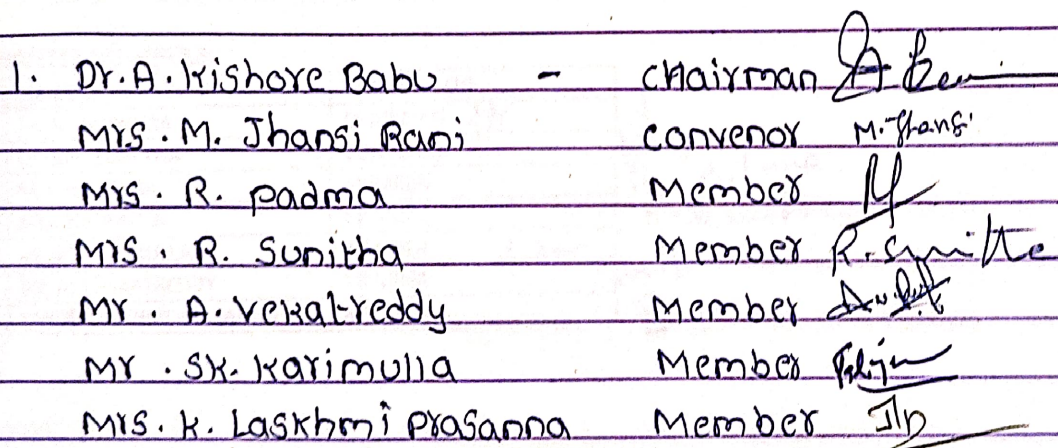 1. Dr. A. Kishore Babu - Chairman
Mrs. M. Jhansi Rani Convenor M. Jhansi
Mrs. R. Padma Member
Mrs. R. Sunitha Member R. Sunitha
Mr. A. Vekatreddy Member
Mr. Sk. Karimulla Member
Mrs. K. Laskhmi Prasanna Member